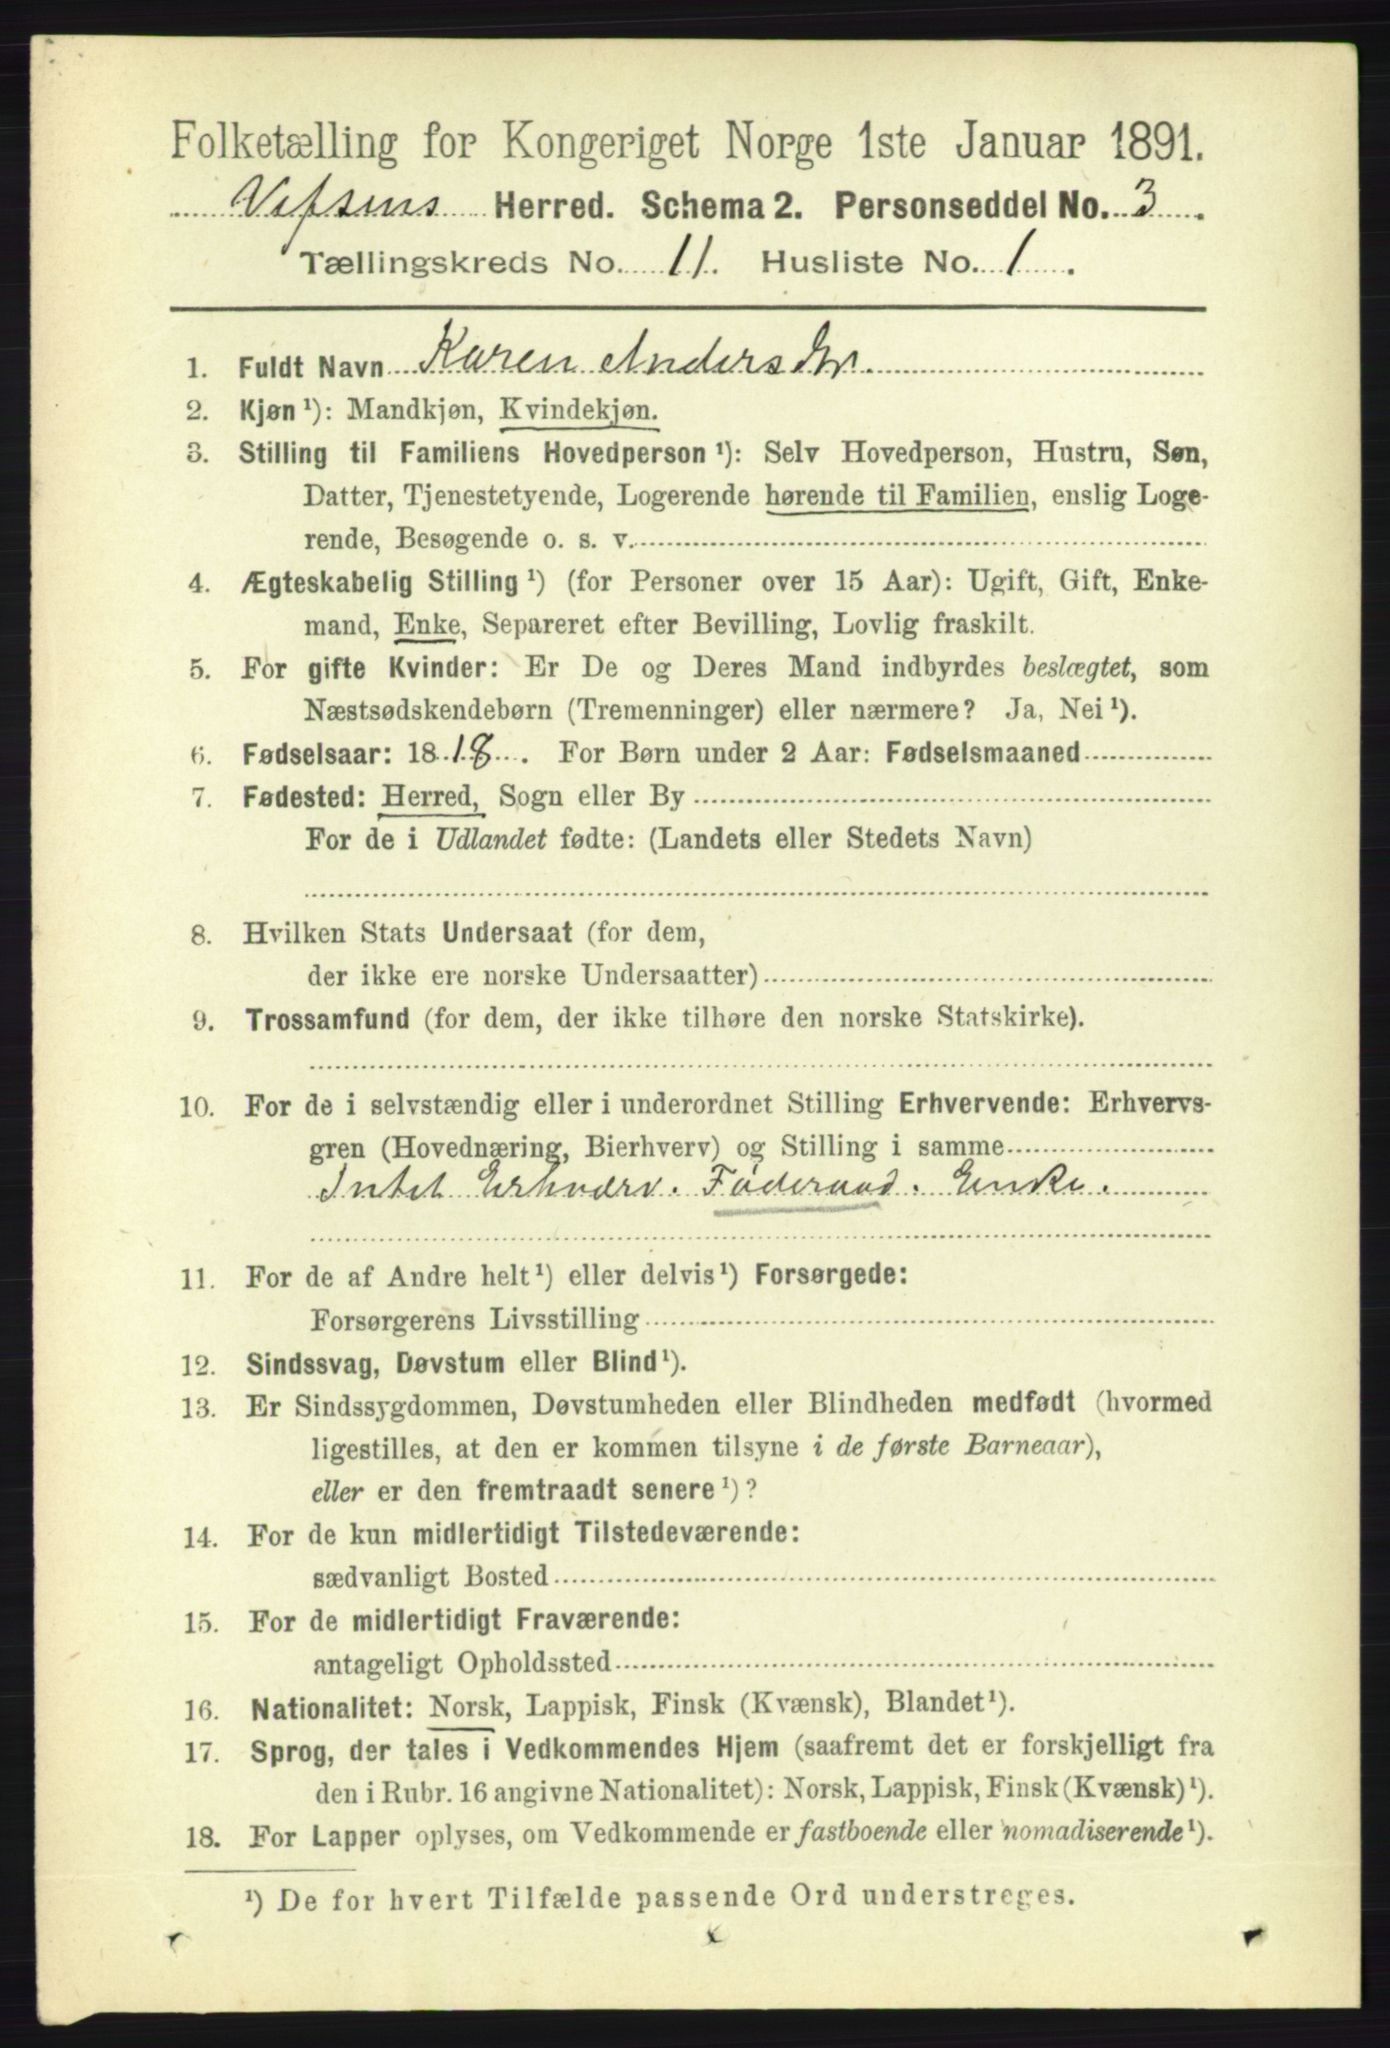 Folketælling for Kongeriget Norge 1ste Januar 1891.
Vefsens Herred. Schema 2. Personseddel No. 3.
Tællingskreds No. 11. Husliste No. 1.
1. Fuldt Navn Karen Andersdtr.
2. Kjøn ¹): Mandkjøn, Kvindekjøn.
3. Stilling til Familiens Hovedperson ¹): Selv Hovedperson, Hustru, Søn,
Datter, Tjenestetyende, Logerende hørende til Familien, enslig Loge-
rende, Besøgende o. s. v.
4. Ægteskabelig Stilling ¹) (for Personer over 15 Aar): Ugift, Gift, Enke-
mand, Enke, Separeret efter Bevilling, Lovlig fraskilt.
5. For gifte Kvinder: Er De og Deres Mand indbyrdes beslægtet, som
Næstsødskendebørn (Tremenninger) eller nærmere? Ja, Nei ¹).
6. Fødselsaar: 1818. For Børn under 2 Aar: Fødselsmaaned
7. Fødested: Herred, Sogn eller By
For de i Udlandet fødte: (Landets eller Stedets Navn)
8. Hvilken Stats Undersaat (for dem,
der ikke ere norske Undersaatter)
9. Trossamfund (for dem, der ikke tilhøre den norske Statskirke).
10. For de i selvstændig eller i underordnet Stilling Erhvervende: Erhvervs-
gren (Hovednæring, Bierhverv) og Stilling i samme
Intet Erhværv. Føderaad. Enke.
11. For de af Andre helt ¹) eller delvis ¹) Forsørgede:
Forsørgerens Livsstilling
12. Sindssvag, Døvstum eller Blind ¹).
13. Er Sindssygdommen, Døvstumheden eller Blindheden medfødt (hvormed
ligestilles, at den er kommen tilsyne i de første Barneaar),
eller er den fremtraadt senere ¹)?
14. For de kun midlertidigt Tilstedeværende:
sædvanligt Bosted
15. For de midlertidigt Fraværende:
antageligt Opholdssted
16. Nationalitet: Norsk, Lappisk, Finsk (Kvænsk), Blandet ¹).
17. Sprog, der tales i Vedkommendes Hjem (saafremt det er forskjelligt fra
den i Rubr. 16 angivne Nationalitet): Norsk, Lappisk, Finsk (Kvænsk) ¹).
18. For Lapper oplyses, om Vedkommende er fastboende eller nomadiserende ¹).
¹) De for hvert Tilfælde passende Ord understreges.